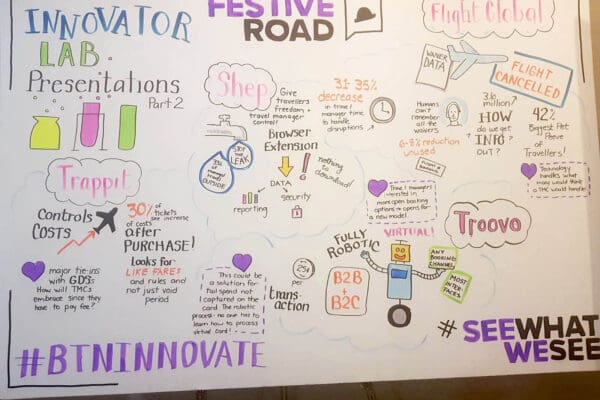 INNOVATOR
LAB
Presentations
Part 2
FESTIVE
ROAD
Flight Global
WAIVER
DATA
FLIGHT
CANCELLED
Shep
Give
travellers
Freedom +
travel manager
control!
31-35%
decrease
in travel
manager time
to handle
disruptions
Humans
can't
remember
all the
waivers
6-8% reduction
unused
3.16
million?
HOW
do we get
INFO
OUT?
42%
Biggest Pet
Peeve
of
Travellers!
Technology
handles what
many would think
a TMC would handle
Browser
Extension
nothing
to
download!
DATA
reporting
security
OUTSIDE
LEAK
Trappit
Controls
COSTS
30%
of tickets
see increase
of costs
after
PURCHASE!
Looks for
LIKE FARES
and rules and
not just void
period
major tie-ins
with
GDSs
How will TMCs
embrace since they
have to pay fee?
Travel managers
interested in
more open booking
options or opens for
a new model
Troovo
FULLY
ROBOTIC
VIRTUAL!
ANY
BOOKING
CHANNEL
MOST
INTER
FACES
B2B
+
B2C
25¢
per
transaction
This could be
a solution for
tail spend not
captured on the
card. The robotic
process- no one has to
learn how to process
virtual card!
#BTNINNOVATE
# SEEWHAT
WESEE